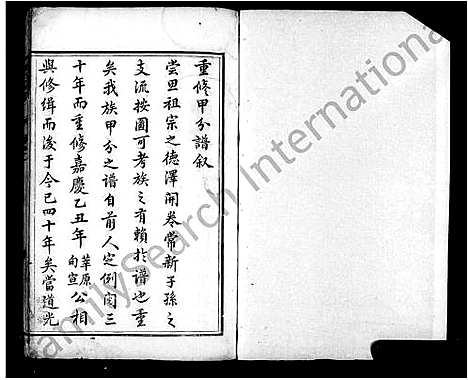 重修甲分譜叙
嘗思祖宗之德澤開卷常新子孫之
支流按圖可考族之有賴於譜也重
矣我族甲分之譜自前人定例閱三
十年而重修嘉慶乙丑年莘原向宣公相
與修緝而後于今已四十年矣當道光
FamilySearch International